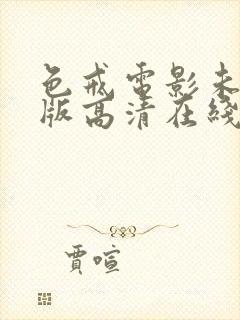 色戒電影未
版高清在綫
賈喧